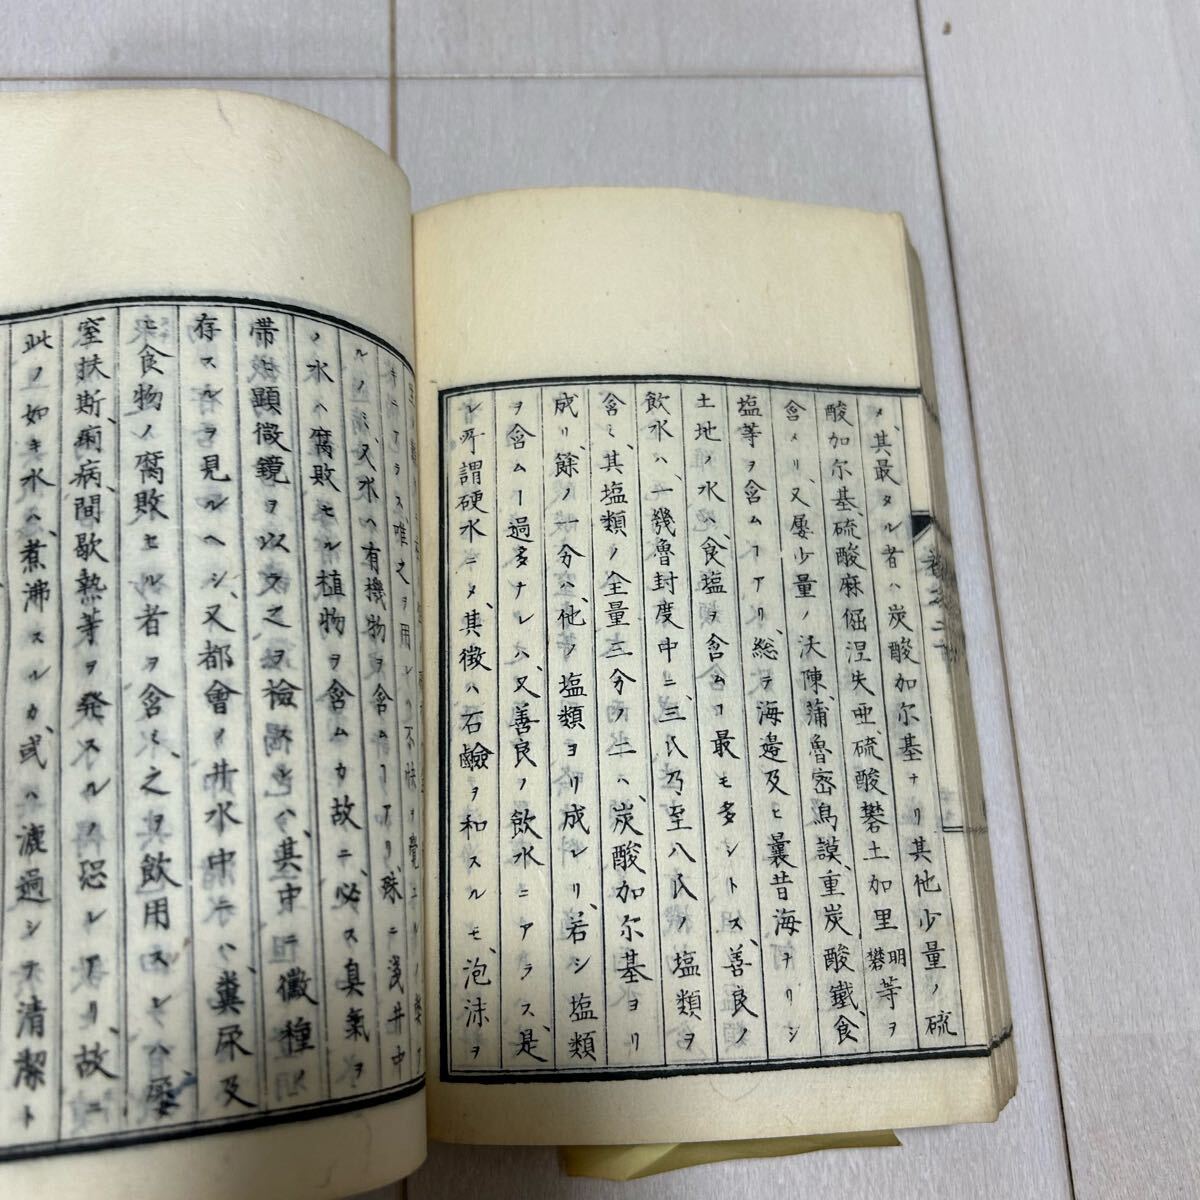 メ、其最タル者ハ炭酸加尓基ナリ其他少量ノ硫
酸加尓基、硫酸麻倔涅失亜、硫酸礬土加里明礬等ヲ
含メリ、又屡少量ノ沃陳、蒲魯密烏謨、重炭酸鐵、食
塩等ヲ含ムヿアリ、総テ海邉及ヒ曩昔海ナリシ
土地ノ水ハ、食塩ヲ含ムヿ最モ多シトス、善良ノ
飲水ハ、一幾魯封度中ニ、三氏乃至八氏ノ塩類ヲ
含ミ、其塩類ノ全量三分ノ二ハ、炭酸加尓基ヨリ
成リ、餘ノ一分ハ、他ノ塩類ヨリ成レリ、若シ塩類
ヲ含ムヿ過多ナレハ、又善良ノ飲水ニアラス、是
レ所謂硬水ニメ、其徴ハ、石鹸ヲ和スルモ、泡沫ヲ
キニアラス唯之ヲ用レハ不
ルノミ、又水ハ有機物ヲ含ムヿアリ、殊ニ浅井中
ノ水ハ腐敗セル植物ヲ含ムカ故ニ、必ス臭氣ヲ
帯ヒ顕微鏡ヲ以テ之ヲ檢
存スルヲ見ルヘシ、又都會ノ井水中ニハ、糞尿及
ヒ食物ノ腐敗セル者ヲ含ミ、之ヲ飲用スレハ、屡
窒扶斯、痢病、間歇熱等ヲ発スルノ恐レアリ、故ニ
此ノ如キ水ハ、煮沸スルカ、或ハ漉過シテ清潔ト